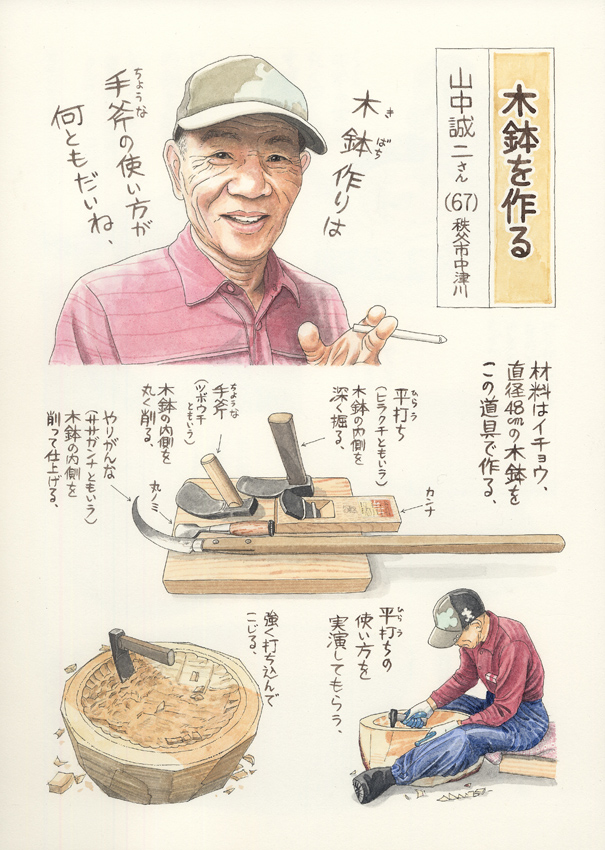 木鉢を作る
山中誠二さん(67)秩父市中津川
木鉢作りは
き ばち
手斧の使い方が
ちょうな
何ともだいね、
材料はイチョウ、
直径48cmの木鉢を
この道具で作る、
平打ち
ひらう
(ヒラクチともいう)
木鉢の内側を
深く掘る、
手斧
ちょうな
(ツボウチ
ともいう)
木鉢の内側を
丸く削る、
やりがんな
(ササガンナともいう)
木鉢の内側を
削って仕上げる、
丸ノミ
カンナ
平打ちの
ひらう
使い方を
実演してもらう、
強く打ち込んで
こじる、